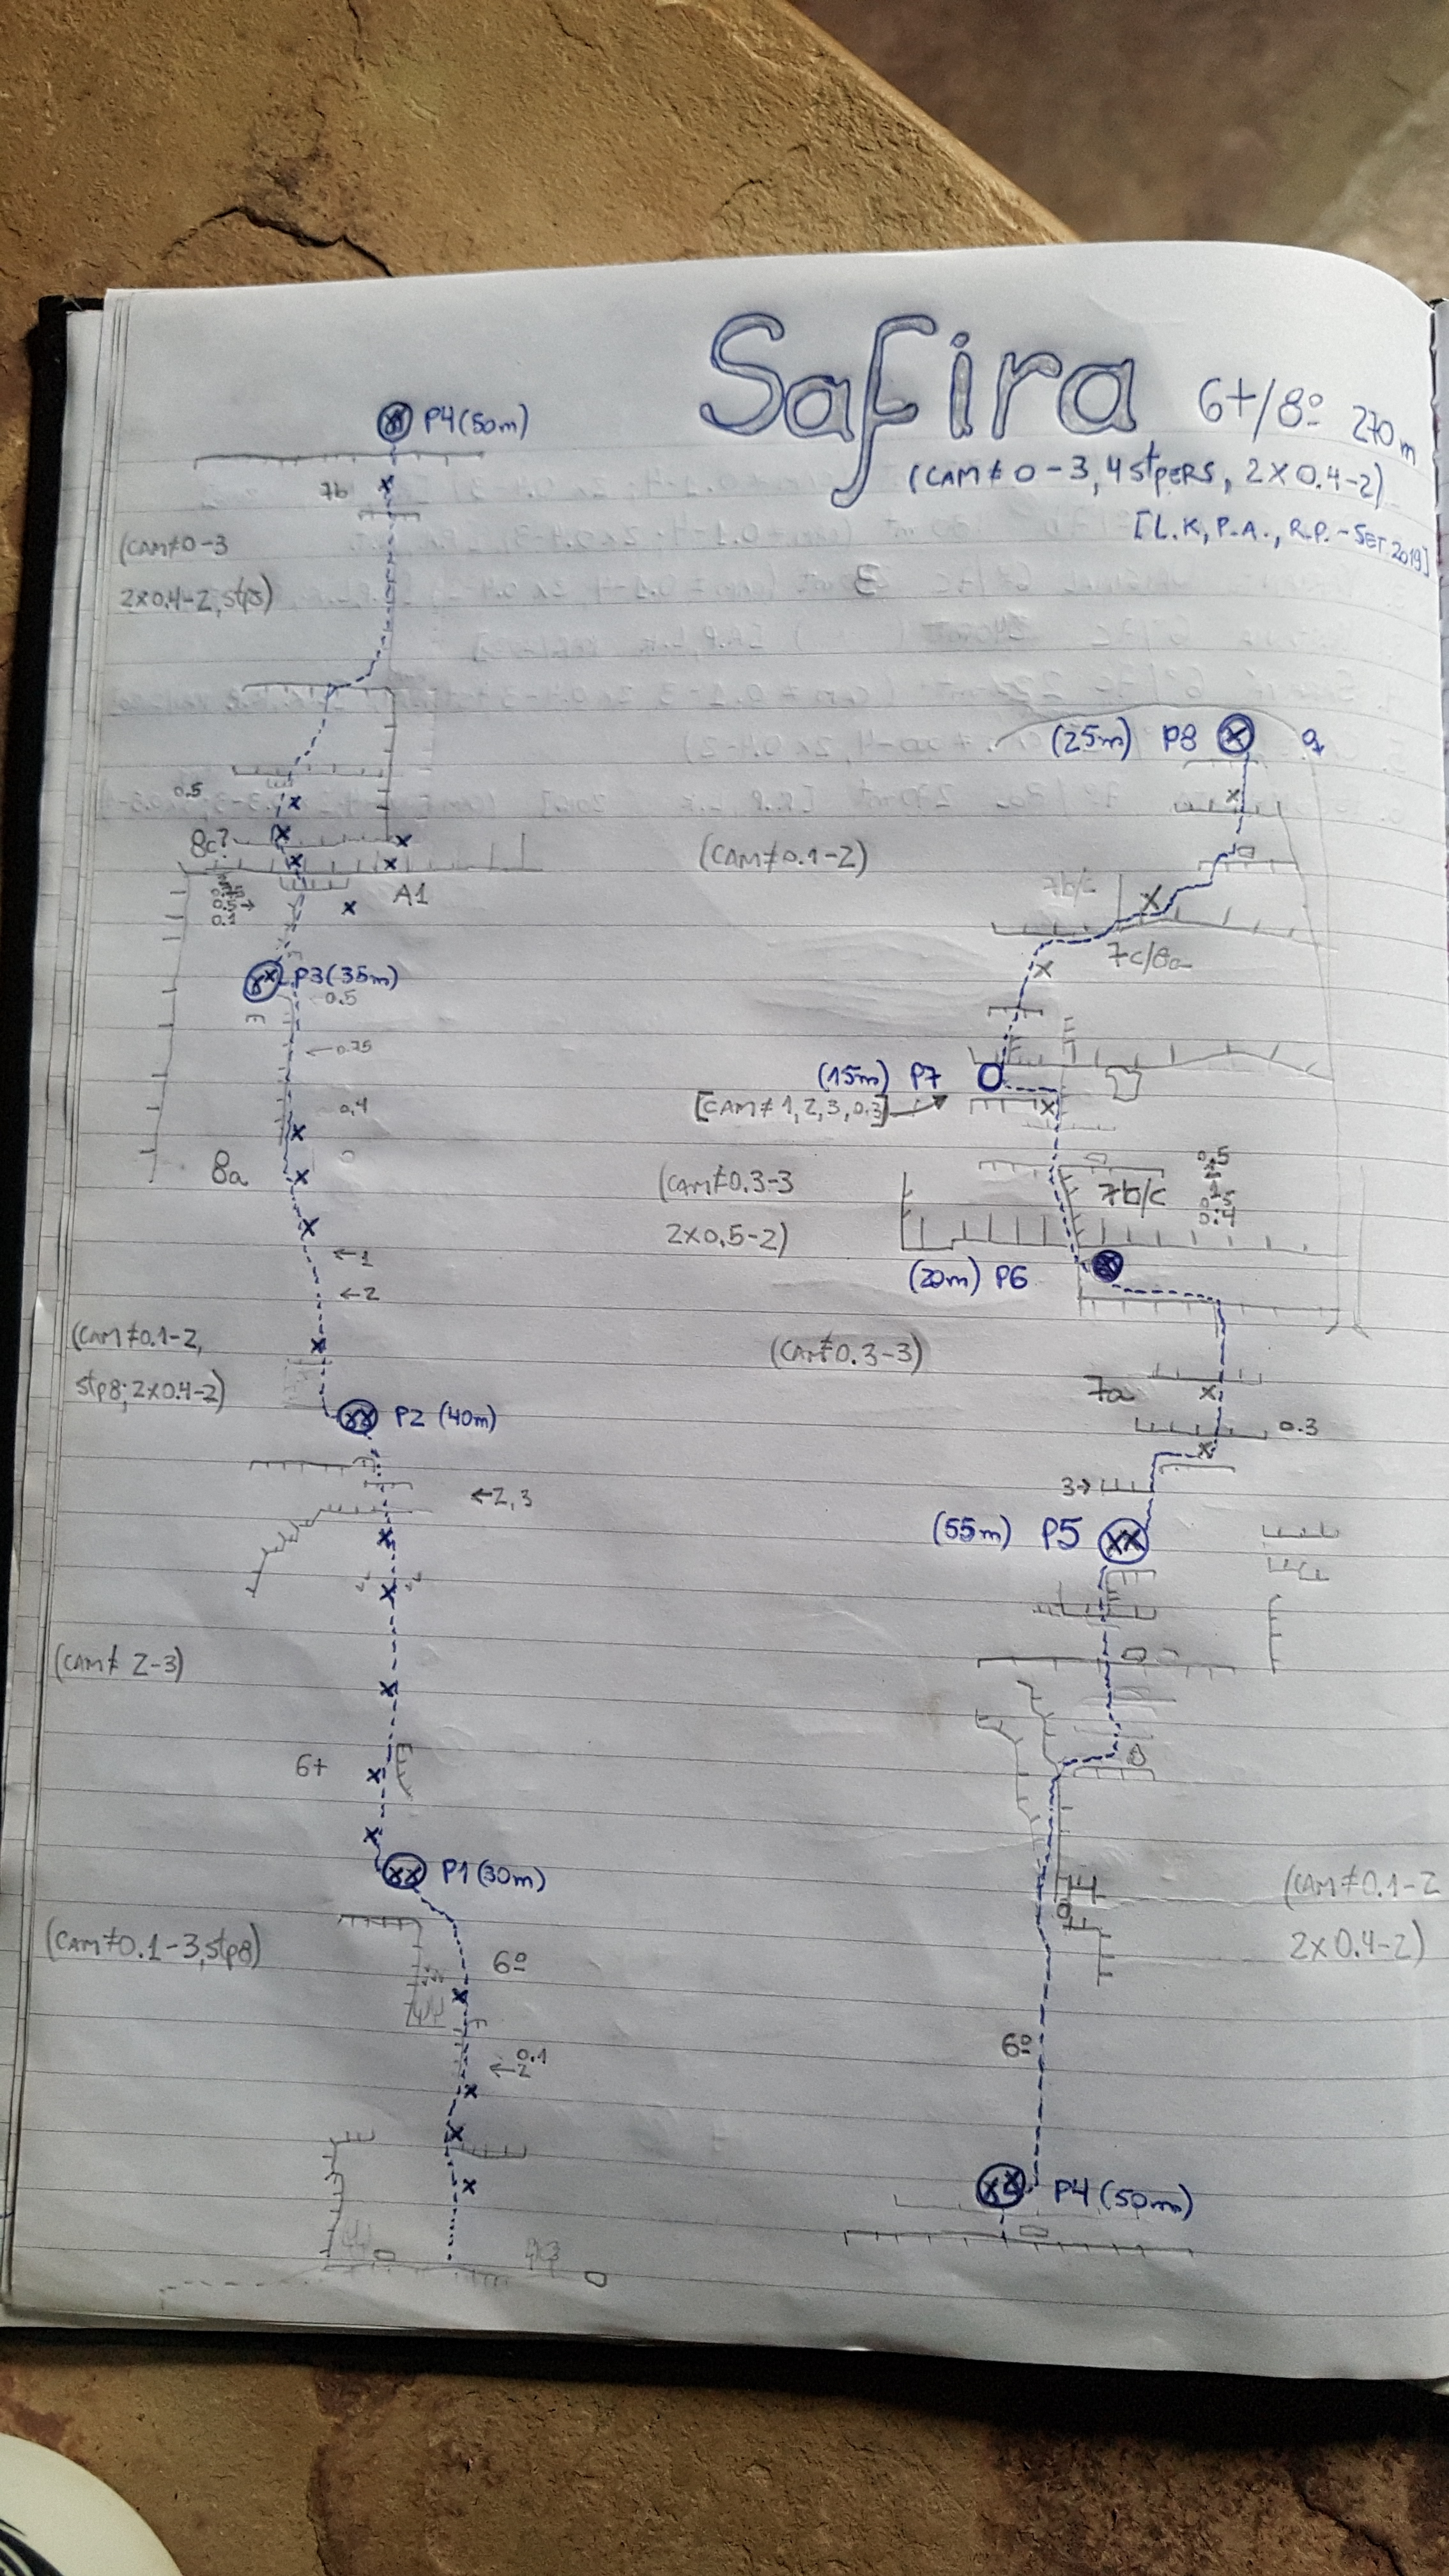 Safira 6+/8º 270m
(CAM≠0-3, 4 stpERS, 2X0.4-2)
[L.K, P.A., R.P. - SET.2019]
P4 (50m)
7b
(CAM≠0-3
2X0.4-2, stp8)
0.5
8c?
A1
0.5→
0.1
P3 (35m)
0.5
←0.75
0.4
0
8a
←1
←2
(CAM≠0.1-2,
stp8; 2X0.4-2)
P2 (40m)
←2,3
(CAM≠ 2-3)
6+
P1 (30m)
(CAM≠0.1-3, stp8)
6º
0.1
←2
(25m) P8
(CAM≠0.1-2)
7b/c
7c/8a
(15m) P7
[CAM≠ 1, 2, 3, 0.3]
(CAM≠0.3-3
2X0.5-2)
7b/c
0.5
0.4
(20m) P6
(CAM≠0.3-3)
7a
0.3
3→
(55m) P5
(CAM≠0.1-2
2X0.4-2)
6º
P4 (50m)